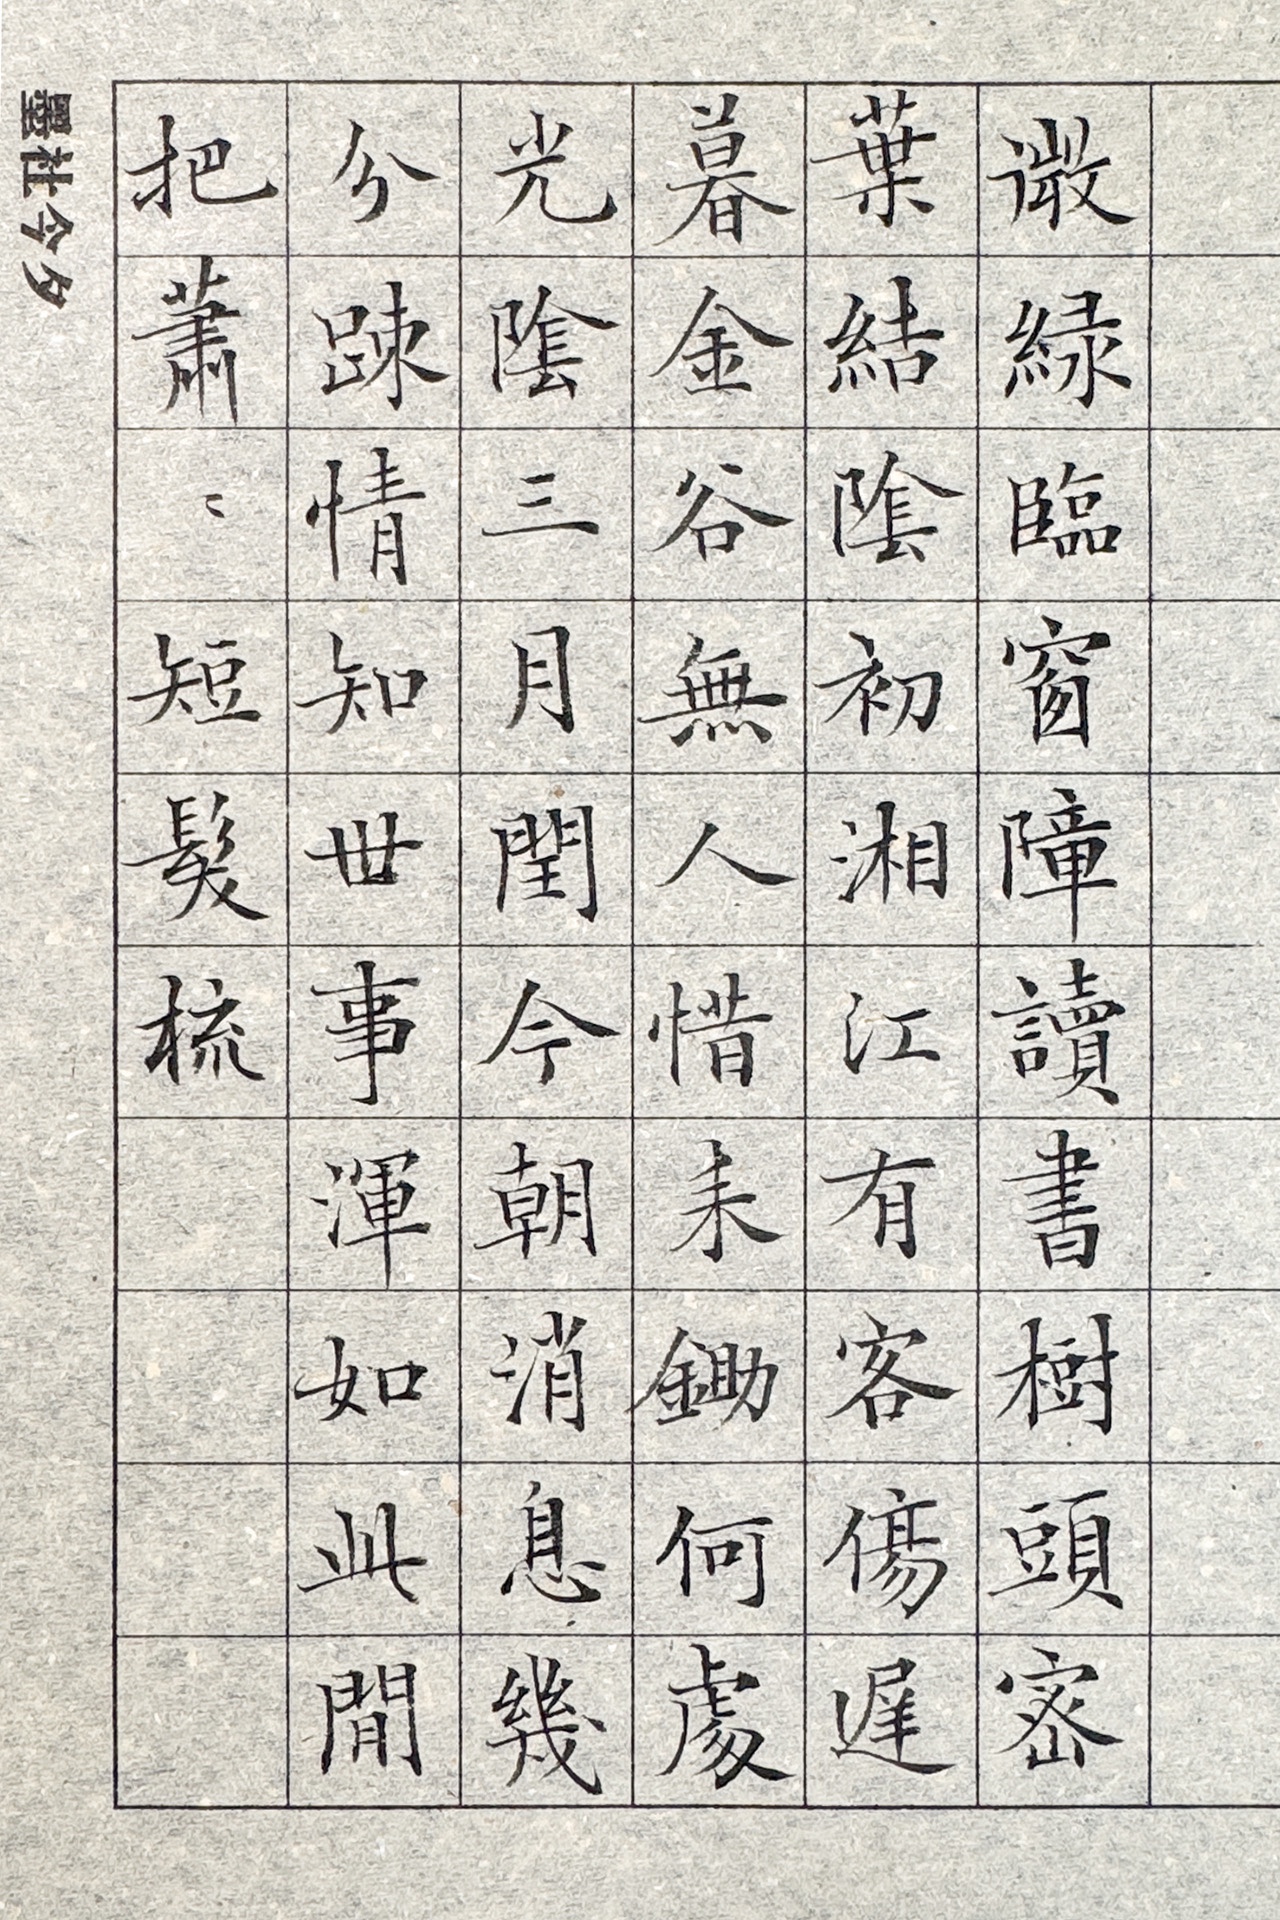 微綠臨窗障讀書樹頭密
葉結陰初湘江有客傷遲
暮金谷無人惜耒鋤何處
光陰三月閏今朝消息幾
分踈情知世事渾如此閒
把蕭〻短髮梳
墨社今夕